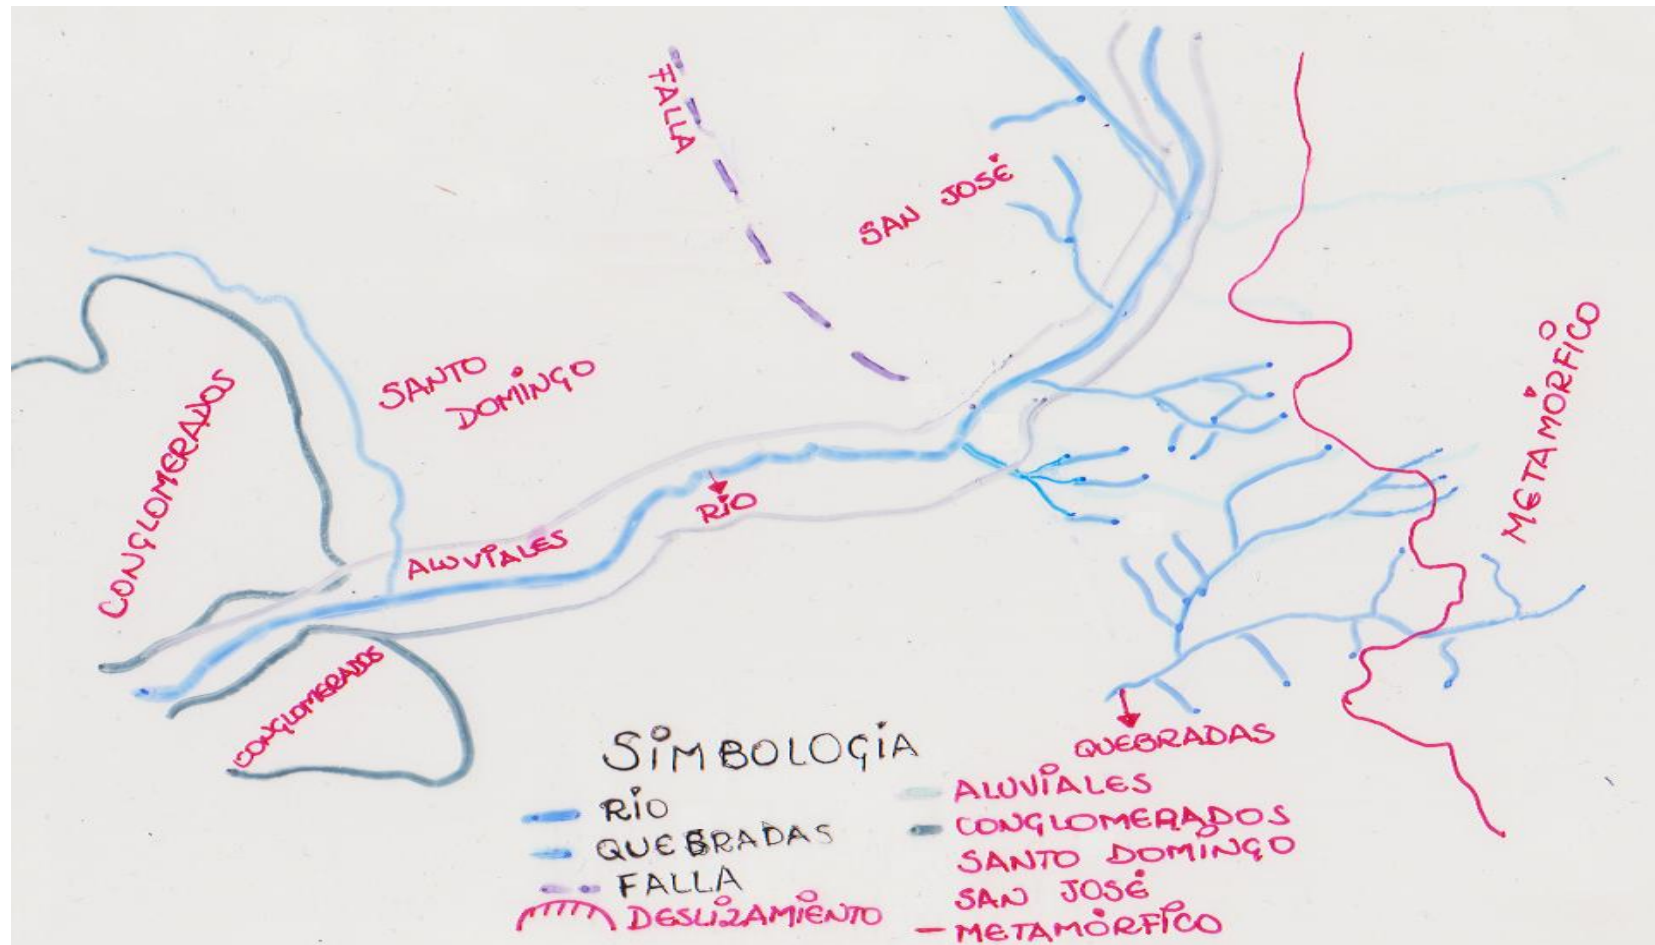 FALLA
SAN JOSÉ
SANTO
DOMINGO
CONGLOMERADOS
METAMÓRFICO
RÍO
ALUVIALES
CONGLOMERADOS
QUEBRADAS
SIMBOLOGÍA
RÍO
QUEBRADAS
FALLA
DESLIZAMIENTO
ALUVIALES
CONGLOMERADOS
SANTO DOMINGO
SAN JOSÉ
METAMÓRFICO